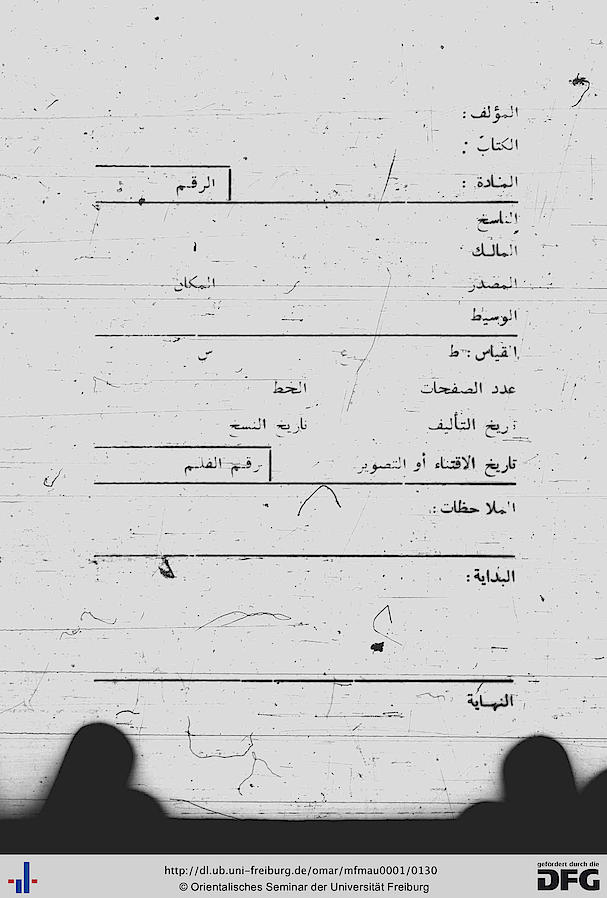 المؤلف :
الكتاب :
المادة : الرقم
الناسخ
المالك
المصدر المكان
الوسيط
القياس : ط ع س
عدد الصفحات الخط
تاريخ التأليف تاريخ النسخ
تاريخ الاقتناء أو التصوير رقم الفلم
الملاحظات :
البداية :
النهاية
http://dl.ub.uni-freiburg.de/omar/mfmau0001/0130
© Orientalisches Seminar der Universität Freiburg
gefördert durch die
DFG